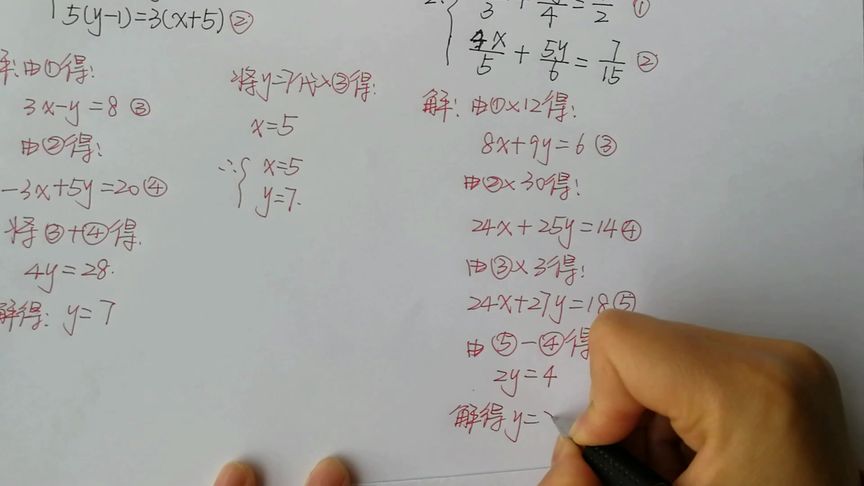 5(y-1)=3(x+5) ②
解:由①得:
3x-y=8 ③
由②得:
-3x+5y=20 ④
将③+④得.
4y=28.
解得: y=7
将y=7代入③得:
x=5
∴{ x=5
y=7.
4x/5 + 5y/6 = 7/15 ②
解: 由①×12得:
8x+9y=6 ③
由②×30得:
24x+25y=14 ④
由③×3得:
24x+27y=18 ⑤
由⑤-④得
2y=4
解得 y=